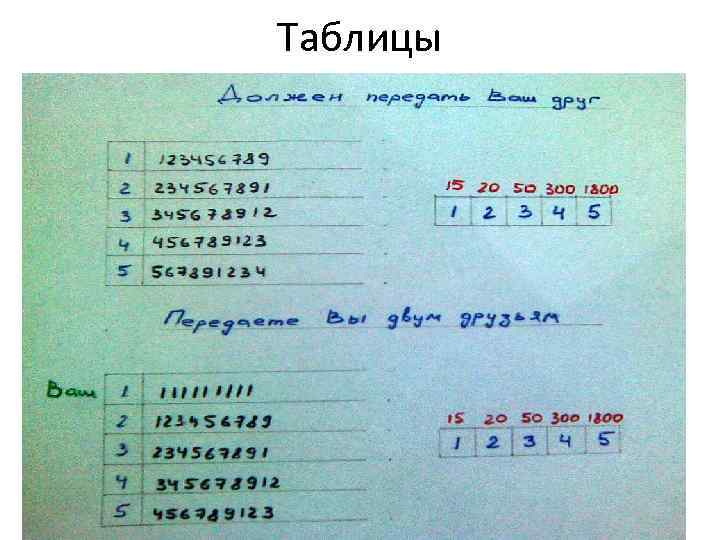 Таблицы
Должен передать Ваш друг
1 123456789
2 234567891
3 345678912
4 456789123
5 567891234
15 20 50 300 1800
1 2 3 4 5
Передаете Вы двум друзьям
Ваш 1 111111111
2 123456789
3 234567891
4 345678912
5 456789123
15 20 50 300 1800
1 2 3 4 5